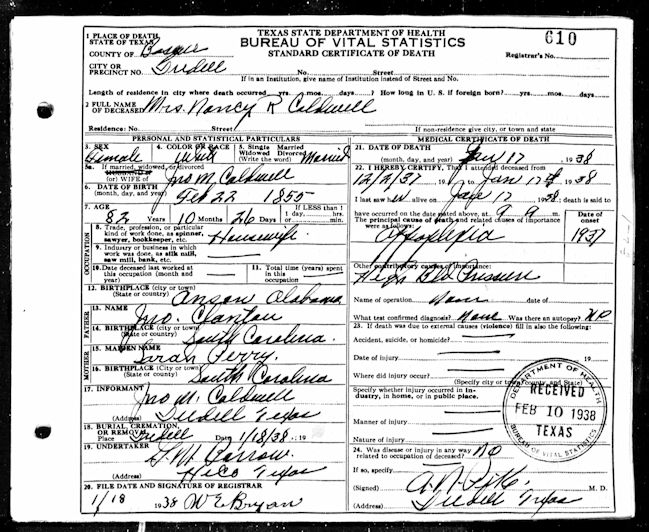 TEXAS STATE DEPARTMENT OF HEALTH
BUREAU OF VITAL STATISTICS
STANDARD CERTIFICATE OF DEATH
610
Registrar's No.
1 PLACE OF DEATH
STATE OF TEXAS
COUNTY OF Bosque
CITY OR PRECINCT NO. Iredell No. Street
If in an Institution, give name of Institution instead of Street and No.
Length of residence in city where death occurred yrs. mos. days. How long in U. S. if foreign born? yrs. mos. days
2 FULL NAME OF DECEASED Mrs. Nancy R Caldwell
Residence: No. Street If non-residence give city, or town and state
PERSONAL AND STATISTICAL PARTICULARS
3. SEX Female 4. COLOR OR RACE White 5. Single Married Widowed Divorced (Write the word) Married
5a. If married, widowed, or divorced HUSBAND of (or) WIFE of Jno M. Caldwell
6. DATE OF BIRTH (month, day, and year) Feb 22 1855
7. AGE 82 Years 10 Months 26 Days If LESS than 1 day, hrs. or min.
OCCUPATION
8. Trade, profession, or particular kind of work done, as spinner, sawyer, bookkeeper, etc. Housewife
9. Industry or business in which work was done, as silk mill, saw mill, bank, etc.
10. Date deceased last worked at this occupation (month and year)
11. Total time (years) spent in this occupation
12. BIRTHPLACE (city or town) (State or country) Anson Alabama
FATHER
13. NAME Jno. Clanton
14. BIRTHPLACE (city or town) (State or country) South Carolina.
MOTHER
15. MAIDEN NAME Sarah Terry
16. BIRTHPLACE (city or town) (State or country) South Carolina
17. INFORMANT Jno M. Caldwell
(Address) Iredell Texas
18. BURIAL, CREMATION, OR REMOVAL
Place Iredell Date 1/18/38 19
19. UNDERTAKER Barrow
(Address) Hico Texas
20. FILE DATE AND SIGNATURE OF REGISTRAR
1/18 1938 W E Bryan
MEDICAL CERTIFICATE OF DEATH
21. DATE OF DEATH (month, day, and year) Jan 17, 1938
22. I HEREBY CERTIFY, That I attended deceased from
12/2/37 to Jan 17th 1938
I last saw h alive on Jan 17 1938, death is said to
have occurred on the date stated above, at 9 a m.
The principal cause of death and related causes of importance were as follows: Date of onset
Apoplexia 1937
Other contributory causes of importance:
High Bld Pressure
Name of operation None date of
What test confirmed diagnosis? None Was there an autopsy? NO
23. If death was due to external causes (violence) fill in also the following:
Accident, suicide, or homicide?
Date of injury 19
Where did injury occur?
(Specify city or town, county, and State)
Specify whether injury occurred in industry, in home, or in public place.
Manner of injury
Nature of injury
24. Was disease or injury in any way related to occupation of deceased? NO
If so, specify
(Signed) M. D.
(Address) Iredell Texas
DEPARTMENT OF HEALTH
RECEIVED
FEB 10 1938
TEXAS
BUREAU OF VITAL STATISTICS